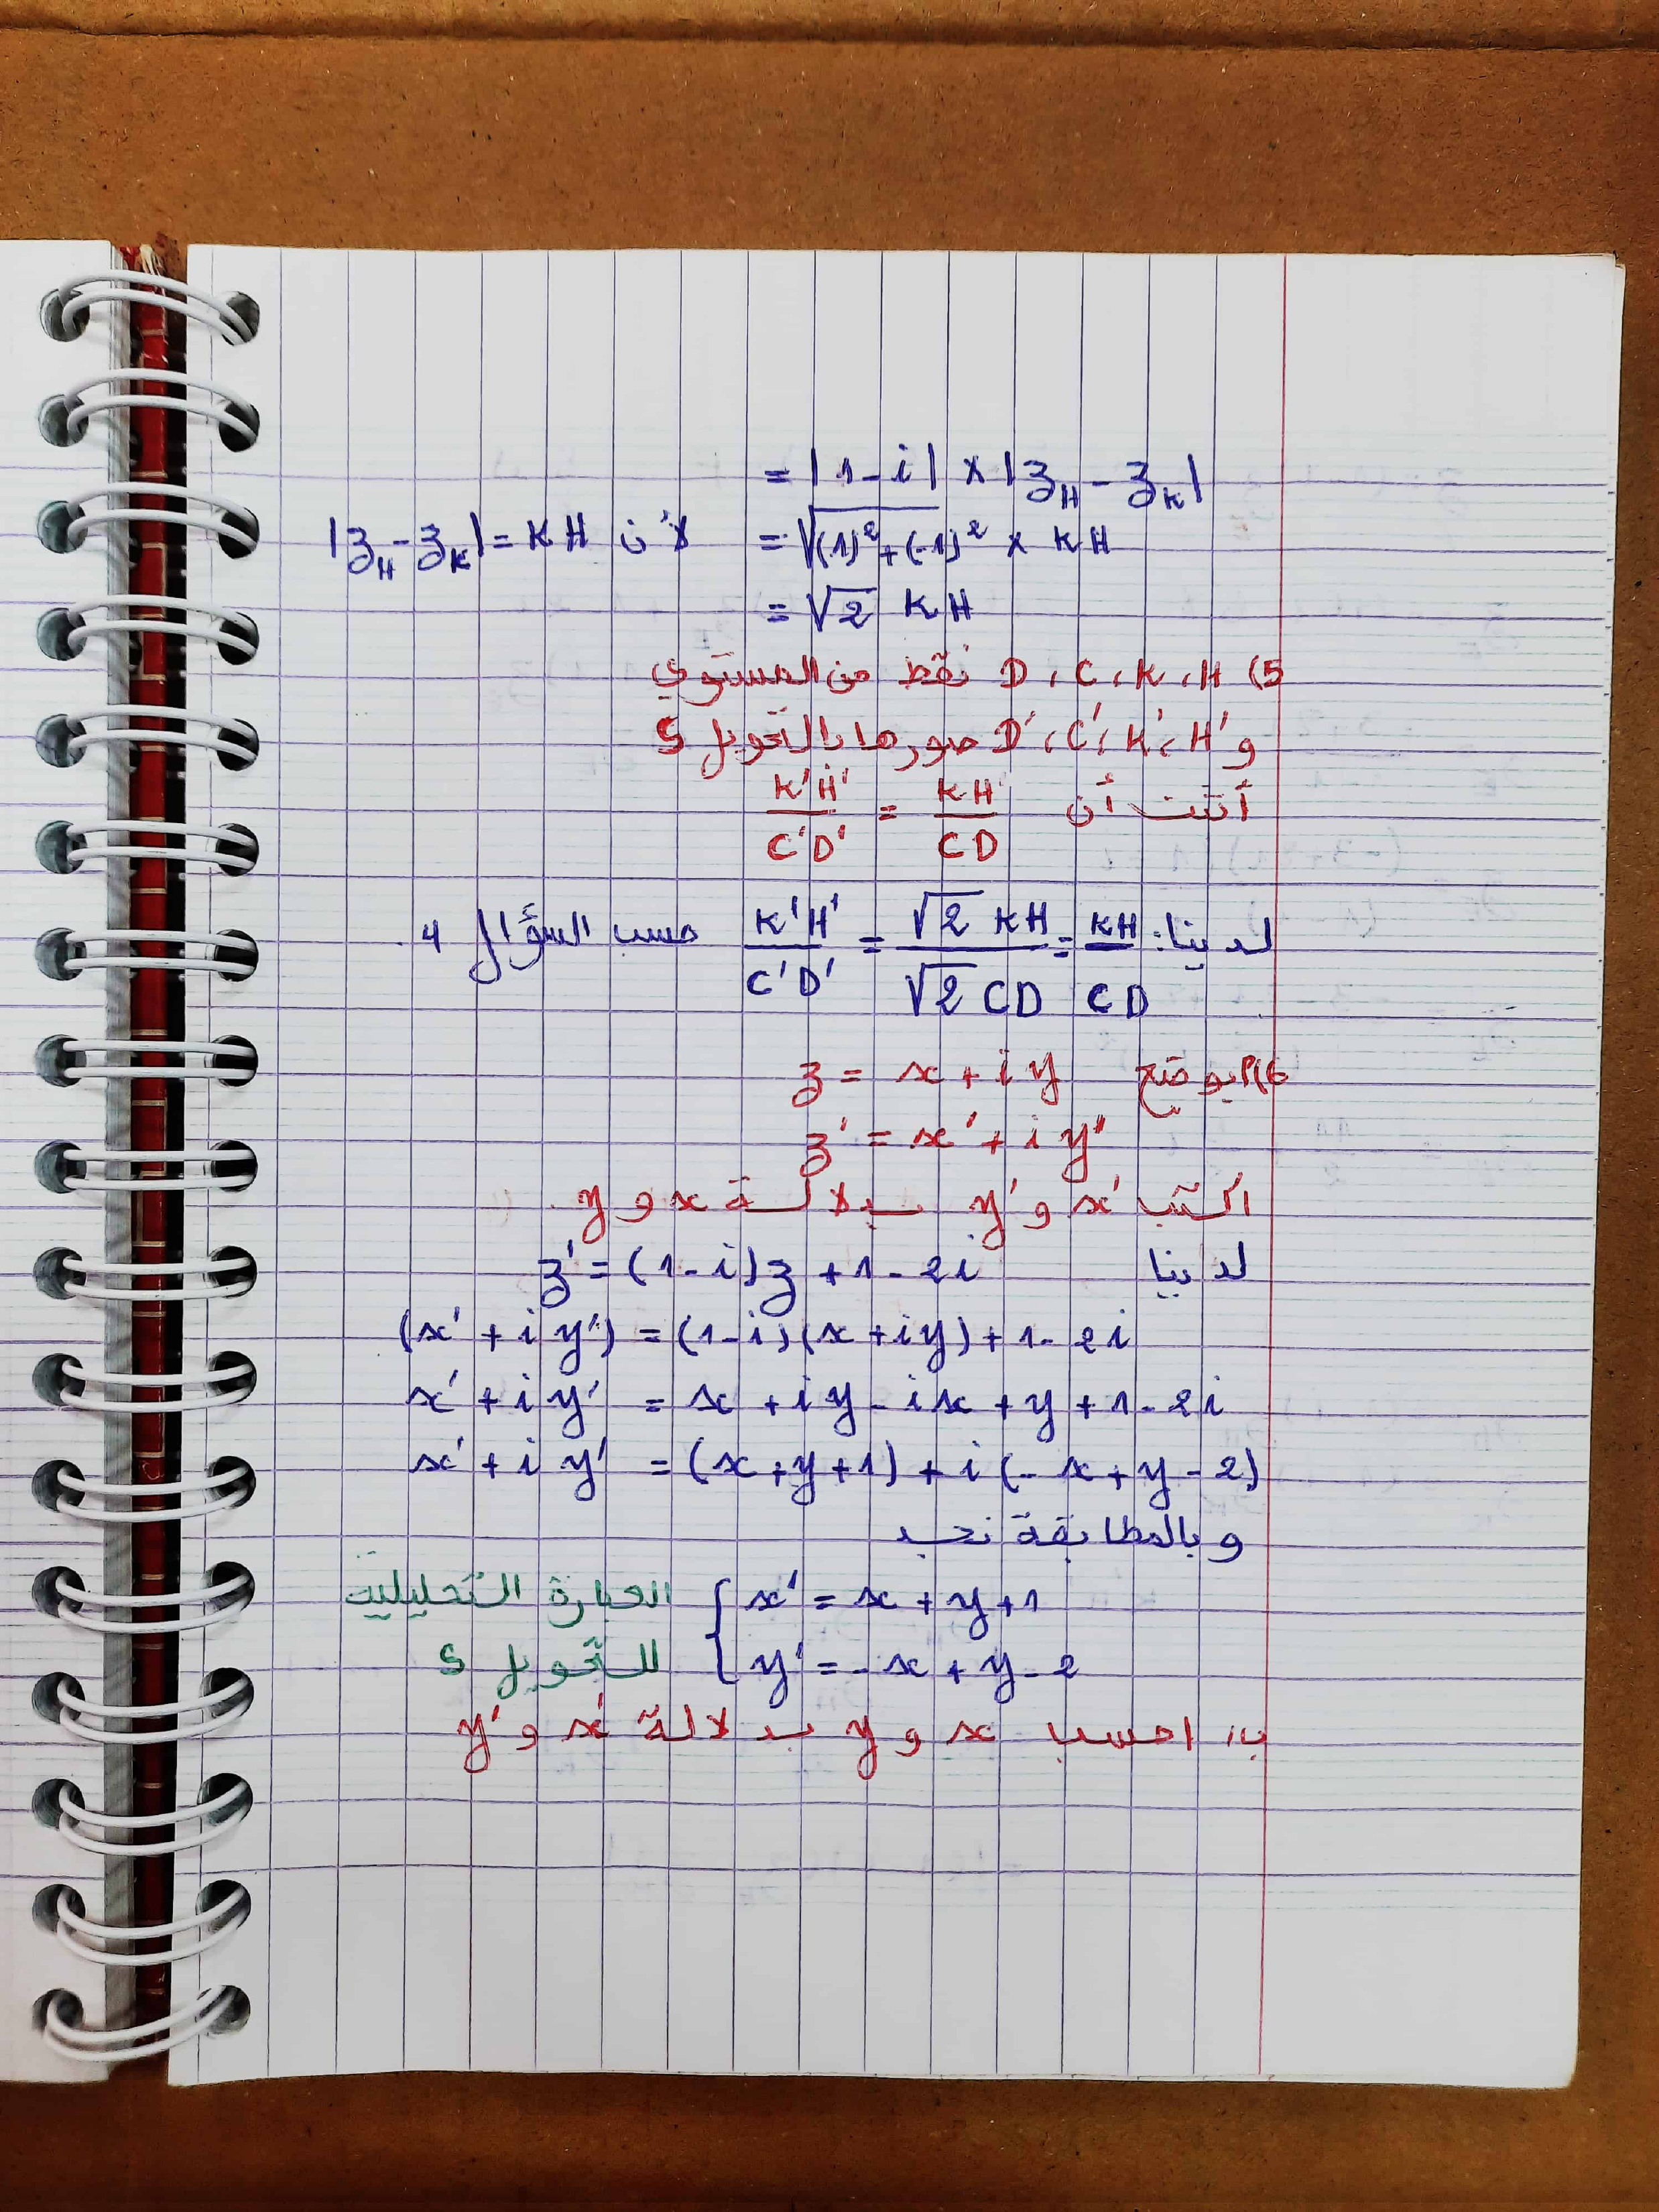 = |1-i| × |z_H - z_K|
= √((1)²+(-1)²) × KH لأن |z_H - z_K| = KH
= √2 KH
5) D، C، K، H نقط من المستوي
و D'، C'، K'، H' صورها بالتحويل S
أثبت أن KH/CD = K'H'/C'D'
لدينا: K'H'/C'D' = √2 KH/√2 CD = KH/CD حسب السؤال 4.
6) أ) بوضع z = x + iy
z' = x' + iy'
اكتب x' و y' بدلالة x و y.
لدينا z' = (1-i)z + 1-2i
(x' + iy') = (1-i)(x+iy) + 1-2i
x' + iy' = x + iy - ix + y + 1 - 2i
x' + iy' = (x+y+1) + i(-x+y-2)
وبالمطابقة نجد
{ x' = x + y + 1 العبارة التحليلية
{ y' = -x + y - 2 للتحويل S
ب) احسب x و y بدلالة x' و y'